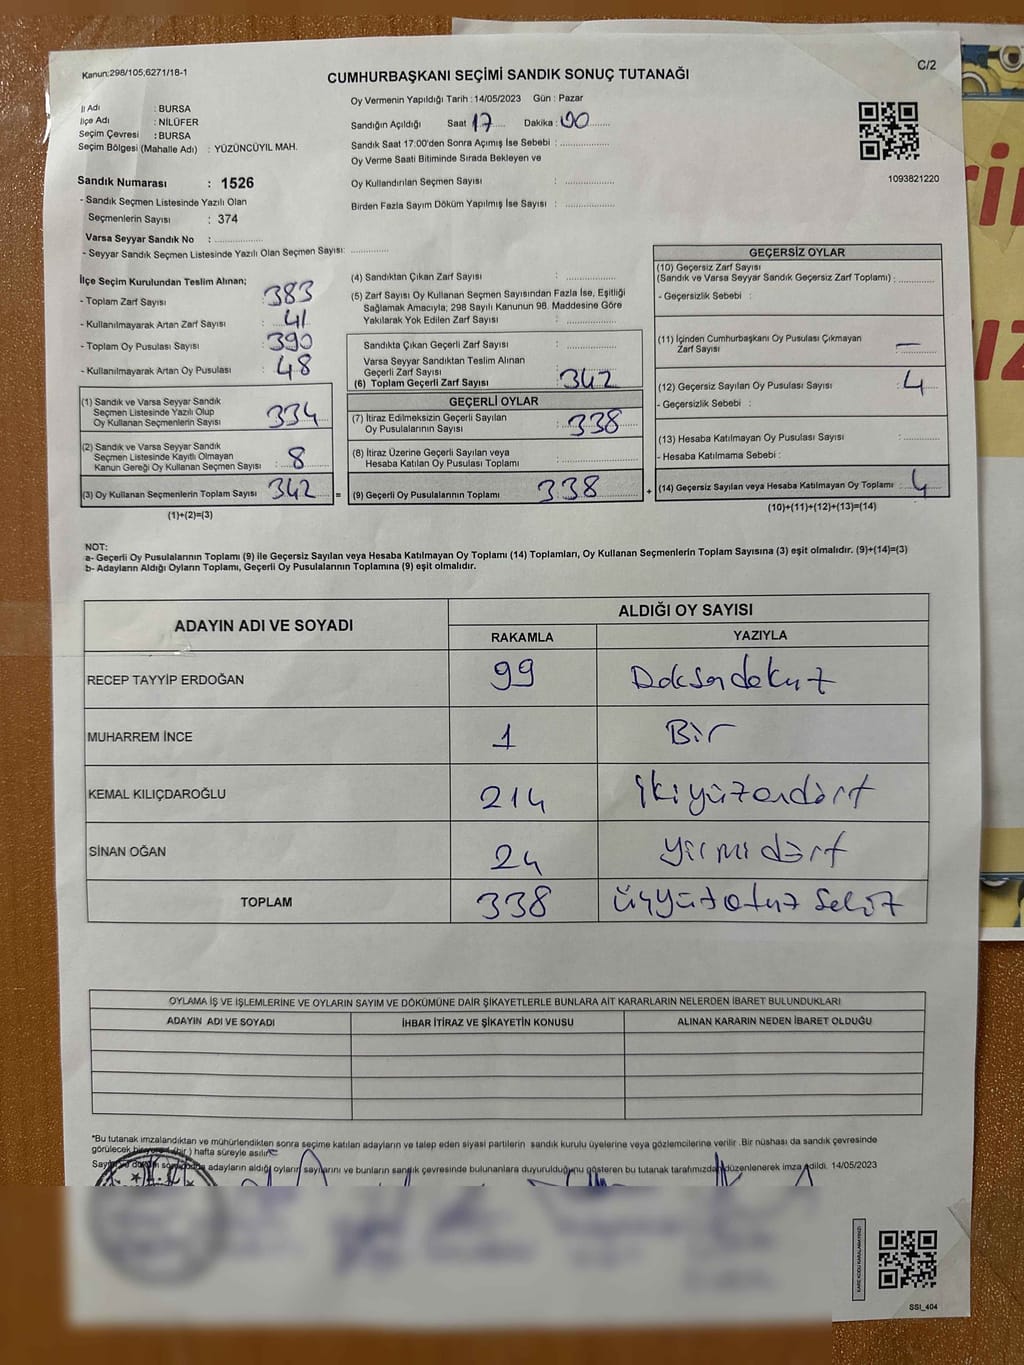 Kanun:298/105,6271/18-1
CUMHURBAŞKANI SEÇİMİ SANDIK SONUÇ TUTANAĞI
C/2
İl Adı : BURSA
İlçe Adı : NİLÜFER
Seçim Çevresi : BURSA
Seçim Bölgesi (Mahalle Adı) : YÜZÜNCÜYIL MAH.
Sandık Numarası : 1526
- Sandık Seçmen Listesinde Yazılı Olan
Seçmenlerin Sayısı : 374
Varsa Seyyar Sandık No : ................
- Seyyar Sandık Seçmen Listesinde Yazılı Olan Seçmen Sayısı: ............
Oy Vermenin Yapıldığı Tarih : 14/05/2023 Gün : Pazar
Sandığın Açıldığı Saat 17 Dakika : 00
Sandık Saat 17:00'den Sonra Açımış İse Sebebi : ................
Oy Verme Saati Bitiminde Sırada Bekleyen ve
Oy Kullandırılan Seçmen Sayısı : ................
Birden Fazla Sayım Döküm Yapılmış İse Sayısı : ................
1093821220
İlçe Seçim Kurulundan Teslim Alınan;
- Toplam Zarf Sayısı : 383
- Kullanılmayarak Artan Zarf Sayısı : 41
- Toplam Oy Pusulası Sayısı : 390
- Kullanılmayarak Artan Oy Pusulası : 48
(1) Sandık ve Varsa Seyyar Sandık
Seçmen Listesinde Yazılı Olup
Oy Kullanan Seçmenlerin Sayısı : 334
(2) Sandık ve Varsa Seyyar Sandık
Seçmen Listesinde Kayıtlı Olmayan
Kanun Gereği Oy Kullanan Seçmen Sayısı : 8
(3) Oy Kullanan Seçmenlerin Toplam Sayısı : 342 =
(1)+(2)=(3)
(4) Sandıktan Çıkan Zarf Sayısı : ................
(5) Zarf Sayısı Oy Kullanan Seçmen Sayısından Fazla İse, Eşitliği
Sağlamak Amacıyla; 298 Sayılı Kanunun 98. Maddesine Göre
Yakılarak Yok Edilen Zarf Sayısı : ................
Sandıkta Çıkan Geçerli Zarf Sayısı : ................
Varsa Seyyar Sandıktan Teslim Alınan
Geçerli Zarf Sayısı : ................
(6) Toplam Geçerli Zarf Sayısı : 342
GEÇERLİ OYLAR
(7) İtiraz Edilmeksizin Geçerli Sayılan
Oy Pusulalarının Sayısı : 338
(8) İtiraz Üzerine Geçerli Sayılan veya
Hesaba Katılan Oy Pusulası Toplamı : ................
(9) Geçerli Oy Pusulalarının Toplamı : 338 +
GEÇERSİZ OYLAR
(10) Geçersiz Zarf Sayısı
(Sandık ve Varsa Seyyar Sandık Geçersiz Zarf Toplamı) : ............
- Geçersizlik Sebebi :
(11) İçinden Cumhurbaşkanı Oy Pusulası Çıkmayan
Zarf Sayısı : —
(12) Geçersiz Sayılan Oy Pusulası Sayısı : 4
- Geçersizlik Sebebi :
(13) Hesaba Katılmayan Oy Pusulası Sayısı : ............
- Hesaba Katılmama Sebebi :
(14) Geçersiz Sayılan veya Hesaba Katılmayan Oy Toplamı : 4
(10)+(11)+(12)+(13)=(14)
NOT:
a- Geçerli Oy Pusulalarının Toplamı (9) ile Geçersiz Sayılan veya Hesaba Katılmayan Oy Toplamı (14) Toplamları, Oy Kullanan Seçmenlerin Toplam Sayısına (3) eşit olmalıdır. (9)+(14)=(3)
b- Adayların Aldığı Oyların Toplamı, Geçerli Oy Pusulalarının Toplamına (9) eşit olmalıdır.
ADAYIN ADI VE SOYADI ALDIĞI OY SAYISI
RAKAMLA YAZIYLA
RECEP TAYYİP ERDOĞAN 99 Doksandokuz
MUHARREM İNCE 1 Bir
KEMAL KILIÇDAROĞLU 214 ikiyüzondört
SİNAN OĞAN 24 yirmi dört
TOPLAM 338 Üçyüzotuz Sekiz
OYLAMA İŞ VE İŞLEMLERİNE VE OYLARIN SAYIM VE DÖKÜMÜNE DAİR ŞİKAYETLERLE BUNLARA AİT KARARLARIN NELERDEN İBARET BULUNDUKLARI
ADAYIN ADI VE SOYADI İHBAR İTİRAZ VE ŞİKAYETİN KONUSU ALINAN KARARIN NEDEN İBARET OLDUĞU
*Bu tutanak imzalandıktan ve mühürlendikten sonra seçime katılan adayların ve talep eden siyasi partilerin sandık kurulu üyelerine veya gözlemcilerine verilir .Bir nüshası da sandık çevresinde
görülecek bir yere 1 (bir ) hafta süreyle asılır.
Sayım ve döküm sonucunda adayların aldığı oyların sayılarını ve bunların sandık çevresinde bulunanlara duyurulduğunu gösteren bu tutanak tarafımızdan düzenlenerek imza edildi. 14/05/2023
SSI_404